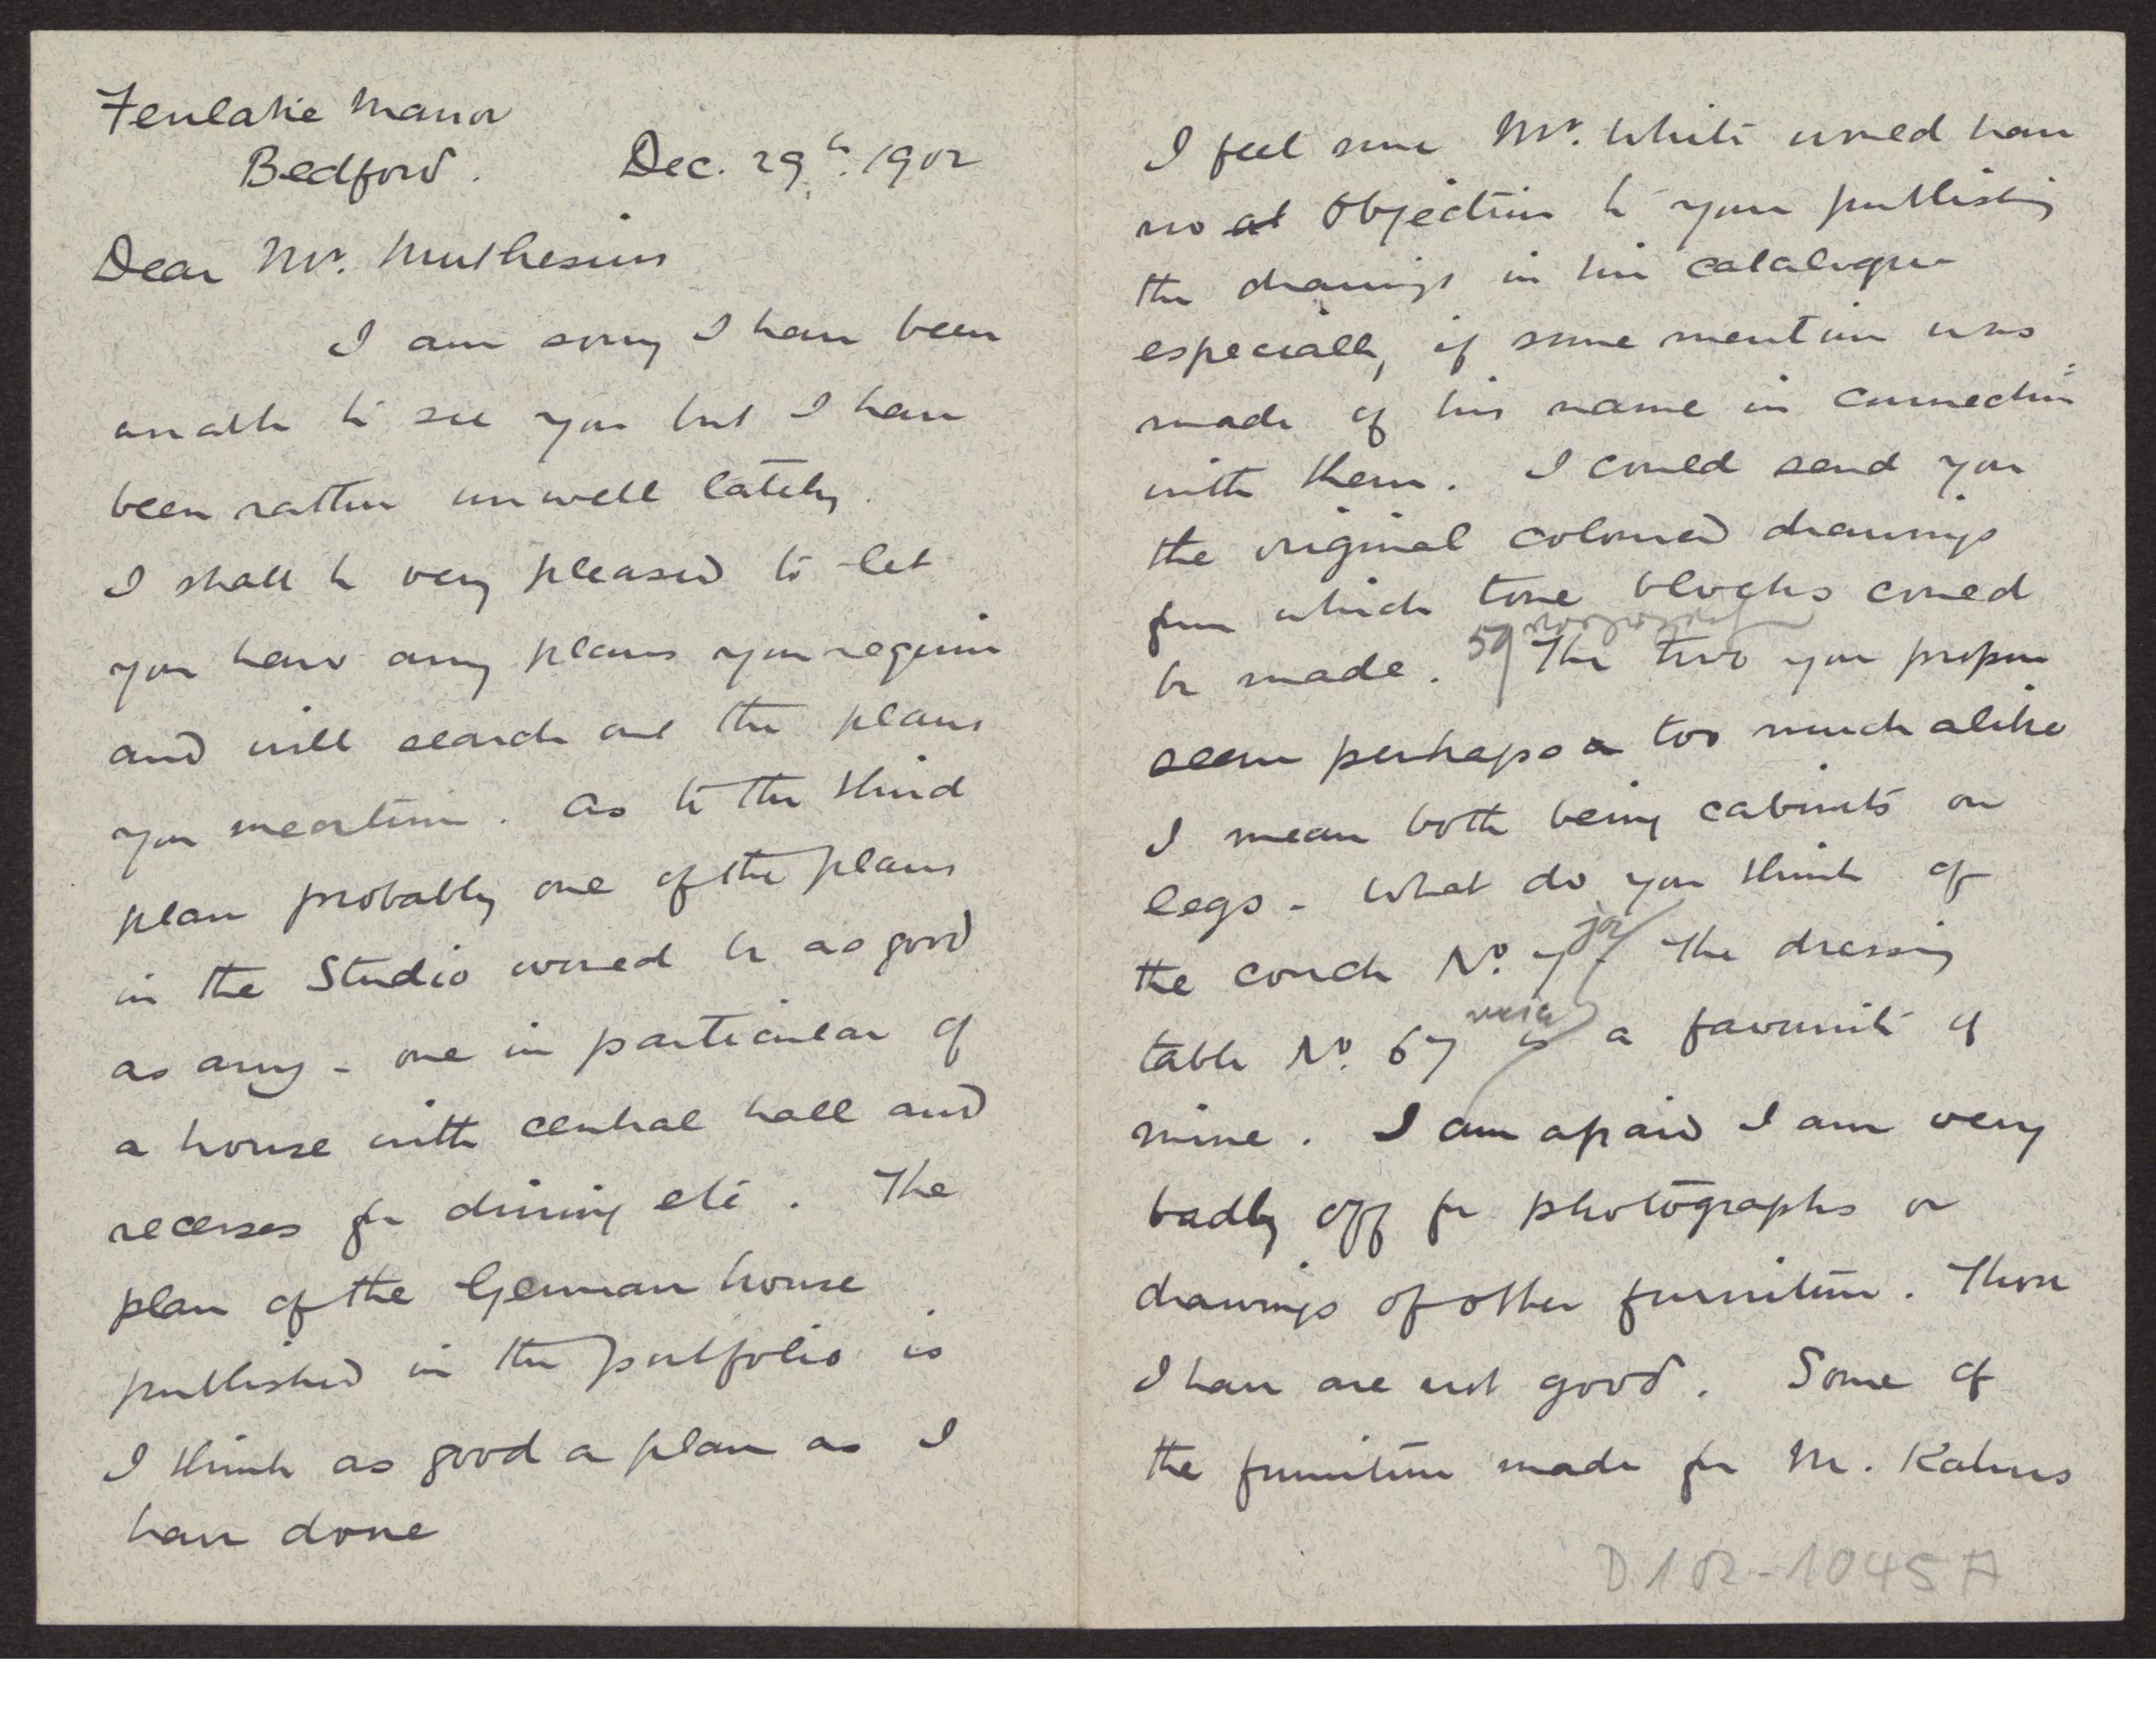 Fenlake Manor
Bedford. Dec. 29th. 1902
Dear Mr. Muthesius
I am sorry I have been
unable to see you but I have
been rather unwell lately.
I shall be very pleased to let
you have any plans you require
and will search out the plans
you mention. As to the third
plan probably one of the plans
in the Studio would be as good
as any - one in particular of
a house with central hall and
recesses for dining etc. The
plan of the German house
published in the portfolio is
I think as good a plan as I
have done
I feel sure Mr. White would have
no objection to your publishing
the drawings in his catalogue
especially if some mention was
made of his name in connection
with them. I could send you
the original coloured drawings
from which tone blocks could
be made. 59 The two you propose
seem perhaps too much alike
I mean both being cabinets on
legs - What do you think of
the couch No. 7 ja The dressing
table No. 67 is a favourite of
mine. I am afraid I am very
badly off for photographs or
drawings of other furniture. Those
I have are not good. Some of
the furniture made for M. Kahns
D 102-1045 A